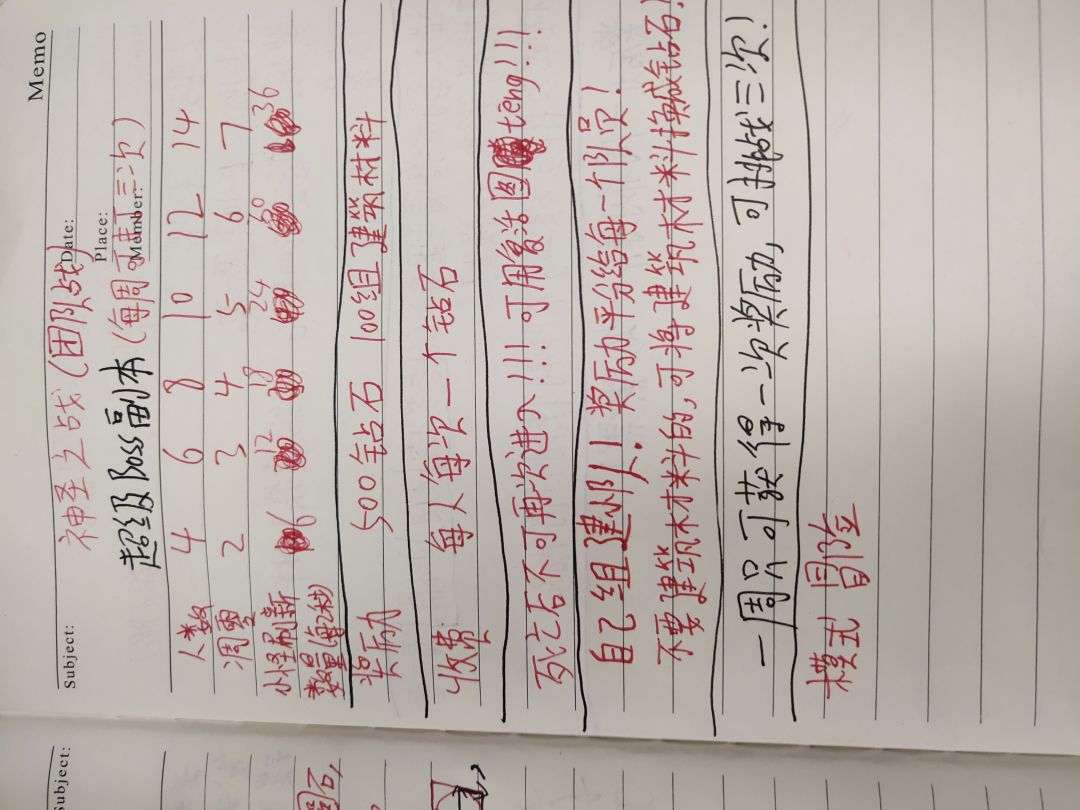 Memo
Subject:
Date:
Place:
Member:
神圣之战(团队战)
超级Boss副本(每周可打三次)
人数 4 6 8 10 12 14
凋零 2 3 4 5 6 7
小怪刷新数量(每秒) 6 12 18 24 30 36
奖励 500钻石 100组建筑材料
收费 每人每次一个钻石
死亡后不可再次进入!!!可用复活图téng!!!
自己组建小队!奖励平分给每一个队员!
不要建筑材料的,可将建筑材料换成钻石!
一周只
模式
Subject: